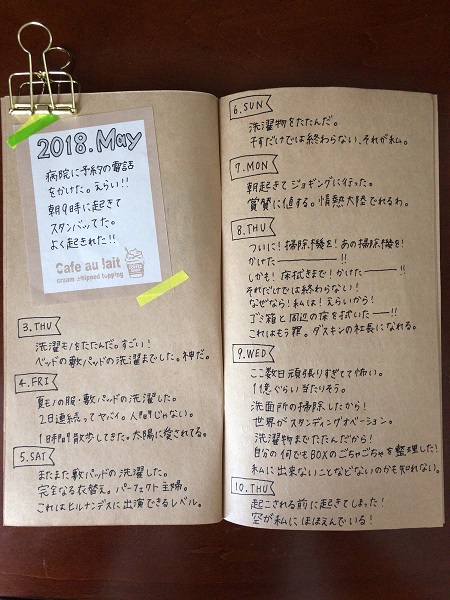 2018.May
病院に予約の電話
をかけた。えらい!!
朝9時に起きて
スタンバッてた。
よく起きれた!!
Cafe au lait
cream whipped topping
3.THU
洗濯モノをたたんだ。すごい!
ベッドの敷パッドの洗濯までした。神だ。
4.FRI
夏モノの服・敷パッドの洗濯した。
2日連続ってヤバイ。人間じゃない。
1時間散歩してきた。太陽に愛されてる。
5.SAT
またまた敷パッドの洗濯した。
完全なる衣替え。パーフェクト主婦。
これはヒルナンデスに出演できるレベル。
6.SUN
洗濯物をたたんだ。
干すだけでは終わらない、それが私。
7.MON
朝起きてジョギングに行った。
賞賛に値する。情熱大陸でれるわ。
8.THU
ついに!掃除機を!あの掃除機を!
かけた――――!!
しかも!床拭きまで!かけた――――!!
それだけでは終わらない!
なぜなら!私は!えらいから!
ゴミ箱と周辺の床を拭いた―!!
これはもう罪。ダスキンの社長になれる。
9.WED
ここ数日頑張りすぎてて怖い。
1億ぐらい当たりそう。
洗面所の掃除したから!
世界がスタンディングオベーション。
洗濯物までたたんだから!
自分の何でもBOXのごちゃごちゃを整理した!
私に出来ないことなどないのかも知れない。
10.THU
起こされる前に起きてしまった!
空が私にほほえんでいる!